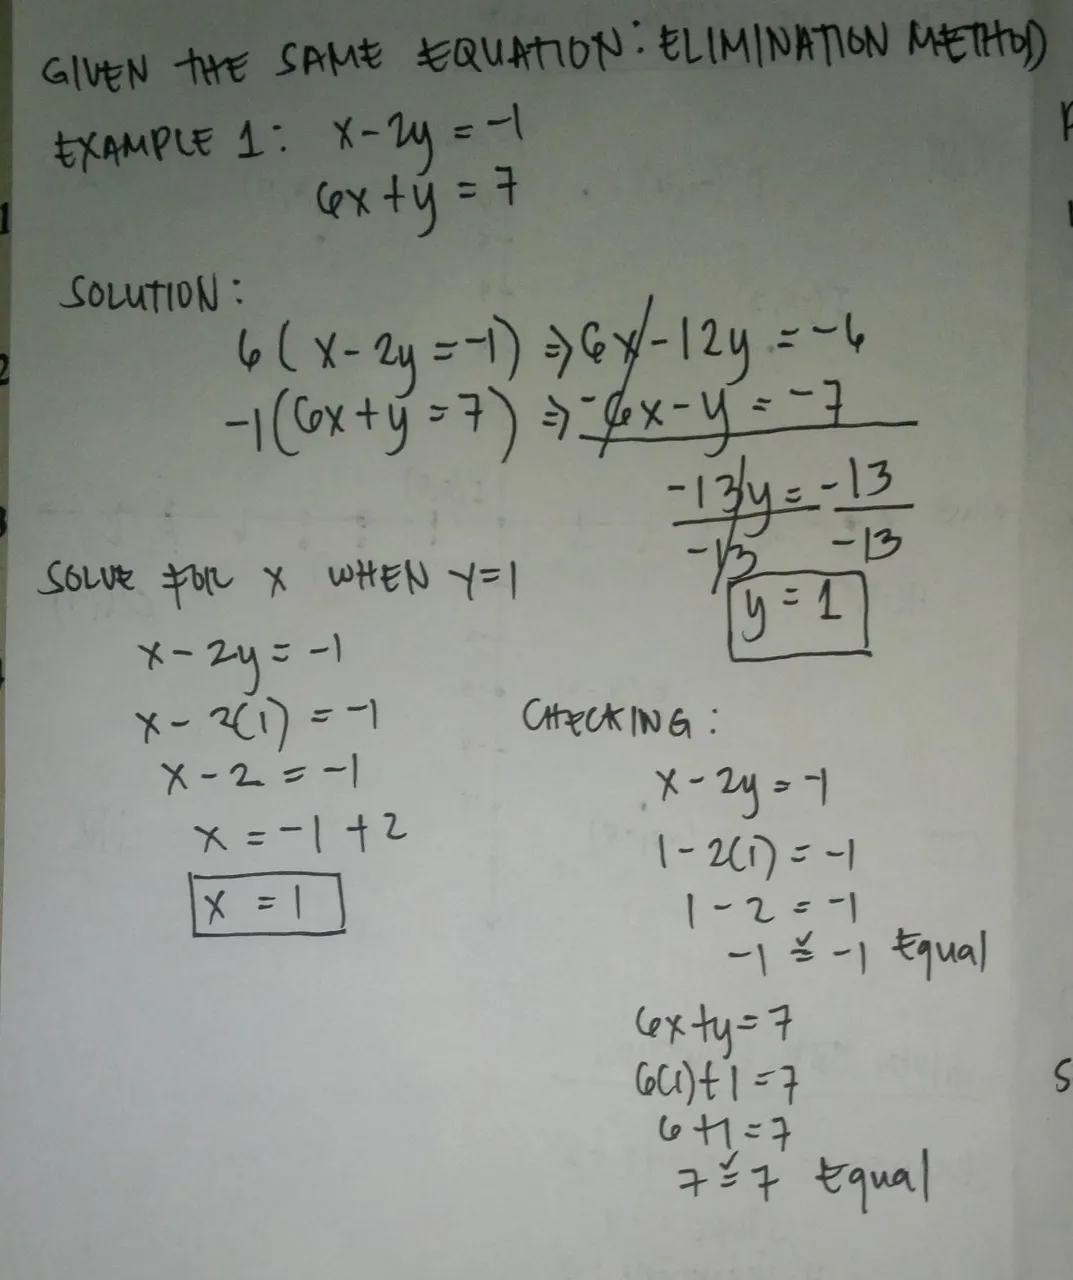 GIVEN THE SAME EQUATION: ELIMINATION METHOD
EXAMPLE 1: x-2y = -1
6x+y = 7
SOLUTION:
6(x-2y=-1) ⇒ 6x-12y = -6
-1(6x+y=7) ⇒ -6x-y = -7
-13y = -13
-13 -13
y = 1
SOLVE FOR X WHEN Y=1
x-2y = -1
x-2(1) = -1
x-2 = -1
x = -1+2
x = 1
CHECKING:
x-2y = -1
1-2(1) = -1
1-2 = -1
-1 = -1 Equal
6x+y = 7
6(1)+1 = 7
6+1 = 7
7 = 7 Equal